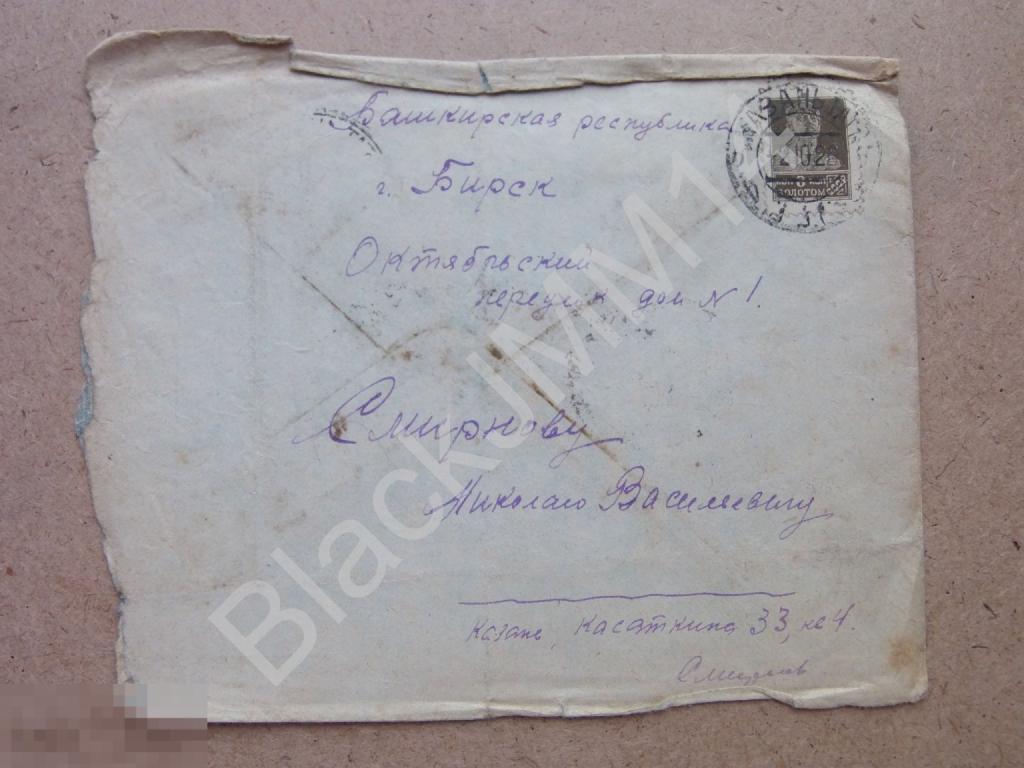 Башкирская республика
г. Бирск
Октябрьский
переулок дом № 1.
Смирнову
Николаю Васильевичу
Казань, Касаткина 33, кв 4.
Смирнов
КАЗАНЬ
2 10 2
КОП 8 КОП
ЗОЛОТОМ
BlackJMM1